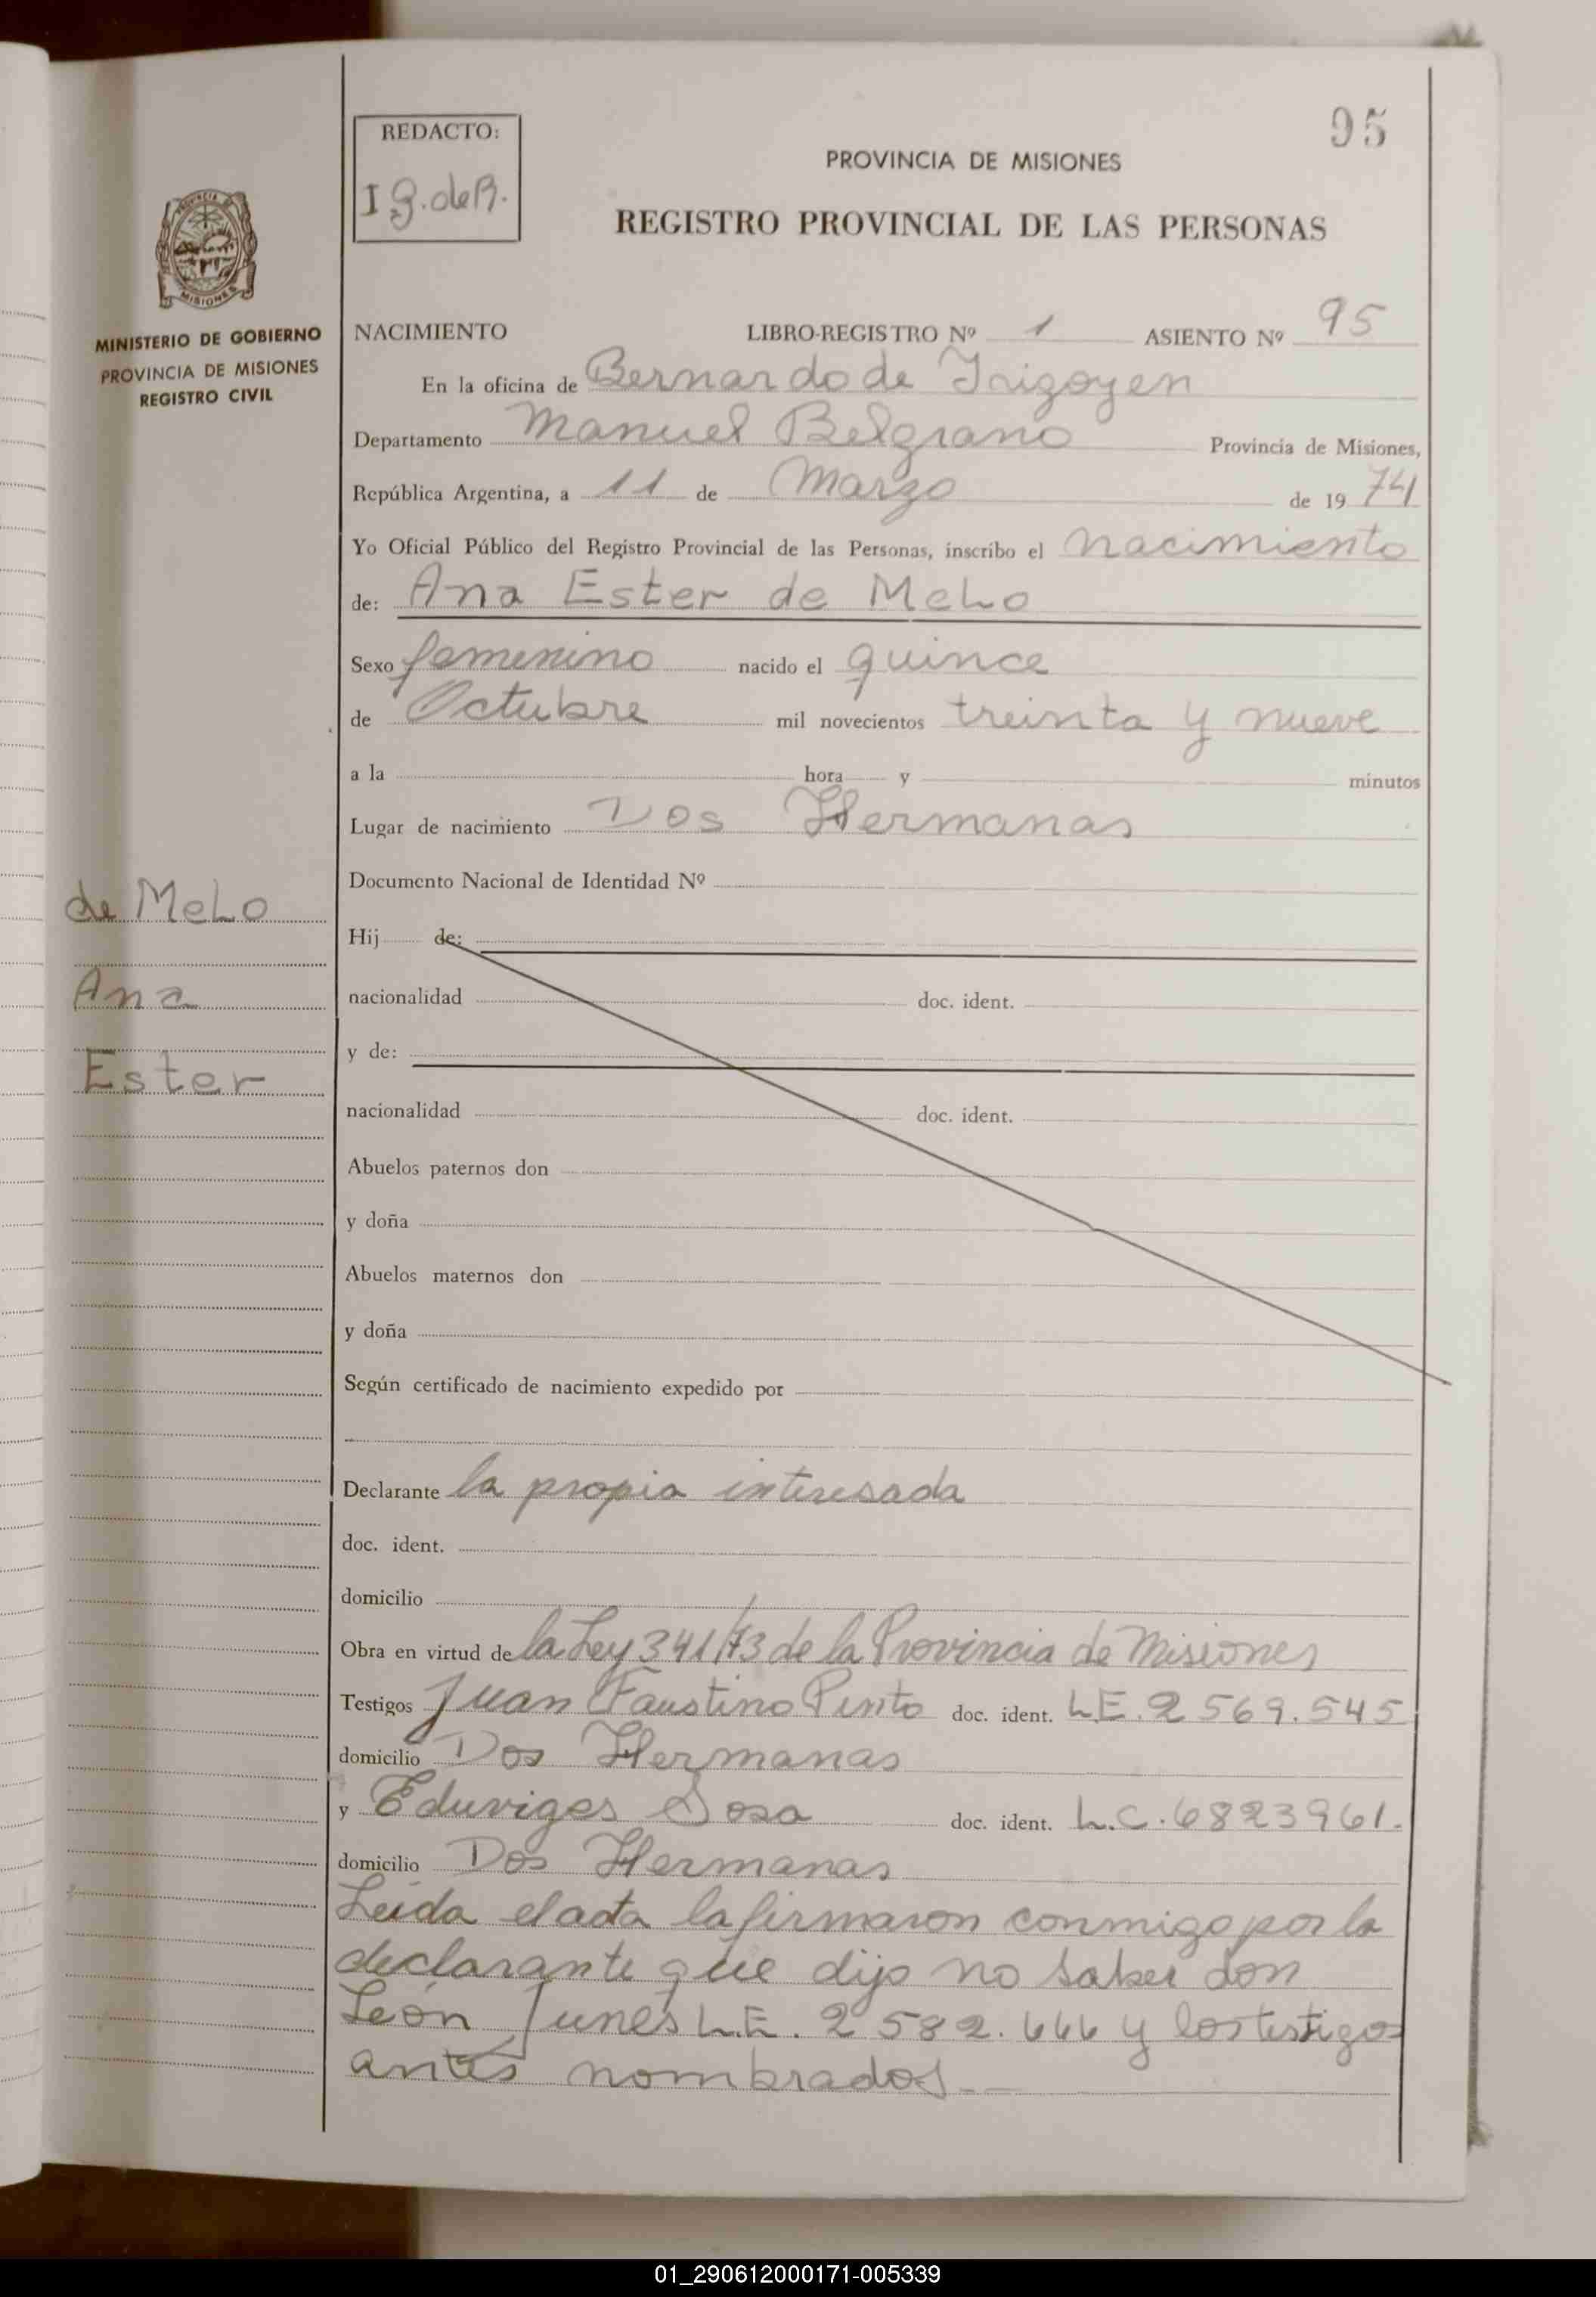 95
REDACTO:
I g. de B.
PROVINCIA DE MISIONES
REGISTRO PROVINCIAL DE LAS PERSONAS
MISIONES
MINISTERIO DE GOBIERNO
PROVINCIA DE MISIONES
REGISTRO CIVIL
NACIMIENTO LIBRO-REGISTRO Nº 1 ASIENTO Nº 95
En la oficina de Bernardo de Irigoyen
Departamento Manuel Belgrano Provincia de Misiones,
República Argentina, a 11 de Marzo de 19 74
Yo Oficial Público del Registro Provincial de las Personas, inscribo el nacimiento
de: Ana Ester de MeLo
Sexo femenino nacido el quince
de Octubre mil novecientos treinta y nueve
a la hora y minutos
Lugar de nacimiento Dos Hermanas
Documento Nacional de Identidad Nº
de MeLo
Ana
Ester
Hij de:
nacionalidad doc. ident.
y de:
nacionalidad doc. ident.
Abuelos paternos don
y doña
Abuelos maternos don
y doña
Según certificado de nacimiento expedido por
Declarante la propia interesada
doc. ident.
domicilio
Obra en virtud de la Ley 341/73 de la Provincia de Misiones
Testigos Juan Faustino Pinto doc. ident. L.E. 2 569.545
domicilio Dos Hermanas
y Eduviges Sosa doc. ident. L.C. 6823961.
domicilio Dos Hermanas
Leida el acta la firmaron conmigo por la
declarante que dijo no saber don
León Junes L.E. 2 582.666 y los testigos
antes nombrados.--
01_290612000171-005339